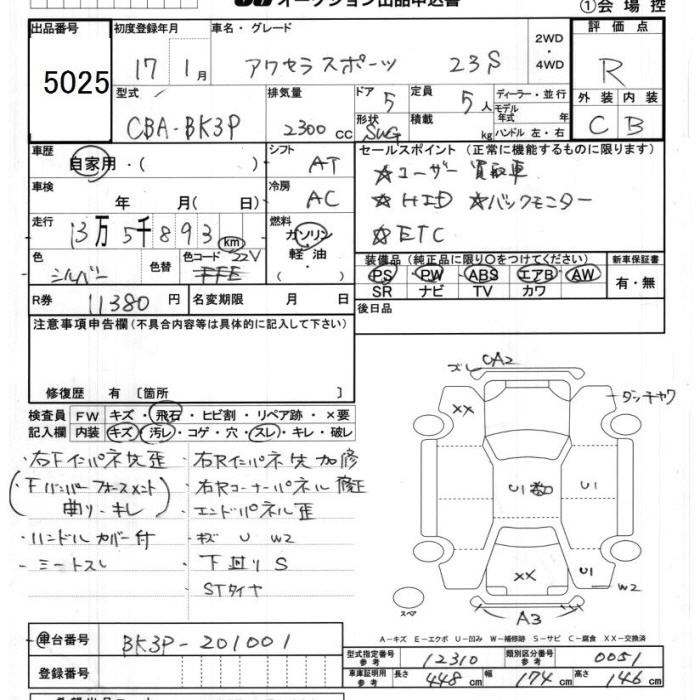 オークション出品申込書
①会場控
出品番号 初度登録年月 車名・グレード 評価点
5025 17 1月 アクセラスポーツ 23S 2WD・4WD R
型式 排気量 ドア 定員 ディーラー・並行 外装 内装
CBA-BK3P 2300cc 5 5人 モデル年式 年 C B
形状 SWG 積載 kg ハンドル 左・右
車歴 シフト セールスポイント (正常に機能するものに限ります)
自家用・( ) AT ☆ユーザー買取車
車検 冷房
年 月( ) AC ☆HID ☆バックモニター
走行 燃料
13万5千893 km ガソリン ☆ETC
軽油
・( )
色 色替 色コード 22V
シルバー
装備品 (純正品に限り○をつけてください) 新車保証書
PS PW ABS エアB AW 有・無
SR ナビ TV カワ
R券 11380円 名変期限 月 日
後日品
注意事項申告欄(不具合内容等は具体的に記入して下さい)
修復歴 有 〔箇所 〕
検査員 FW キズ・飛石・ヒビ割・リペア跡・×要
記入欄 内装 キズ・汚レ・コゲ・穴・スレ・キレ・破レ
・右Fインパネ先歪 ・右Rインパネ先加修
(Fバンパーフォースメント ・右Rコーナーパネル修正
曲リ・キレ) ・エンドパネル歪
・ハンドルカバー付 ・キズ U W2
・シートスレ ・下回りS
・STタイヤ
ズレ A2
XX
U1 U1
XX U1
W2
スペア
A3
A-キズ E-エクボ U-凹み W-補修跡 S-サビ C-腐食 XX-交換済
車台番号 BK3P-201001
登録番号
型式指定番号 参考 12310 類別区分番号 参考 0051
車庫証明用 参考 長さ 448cm 幅 174cm 高さ 146cm